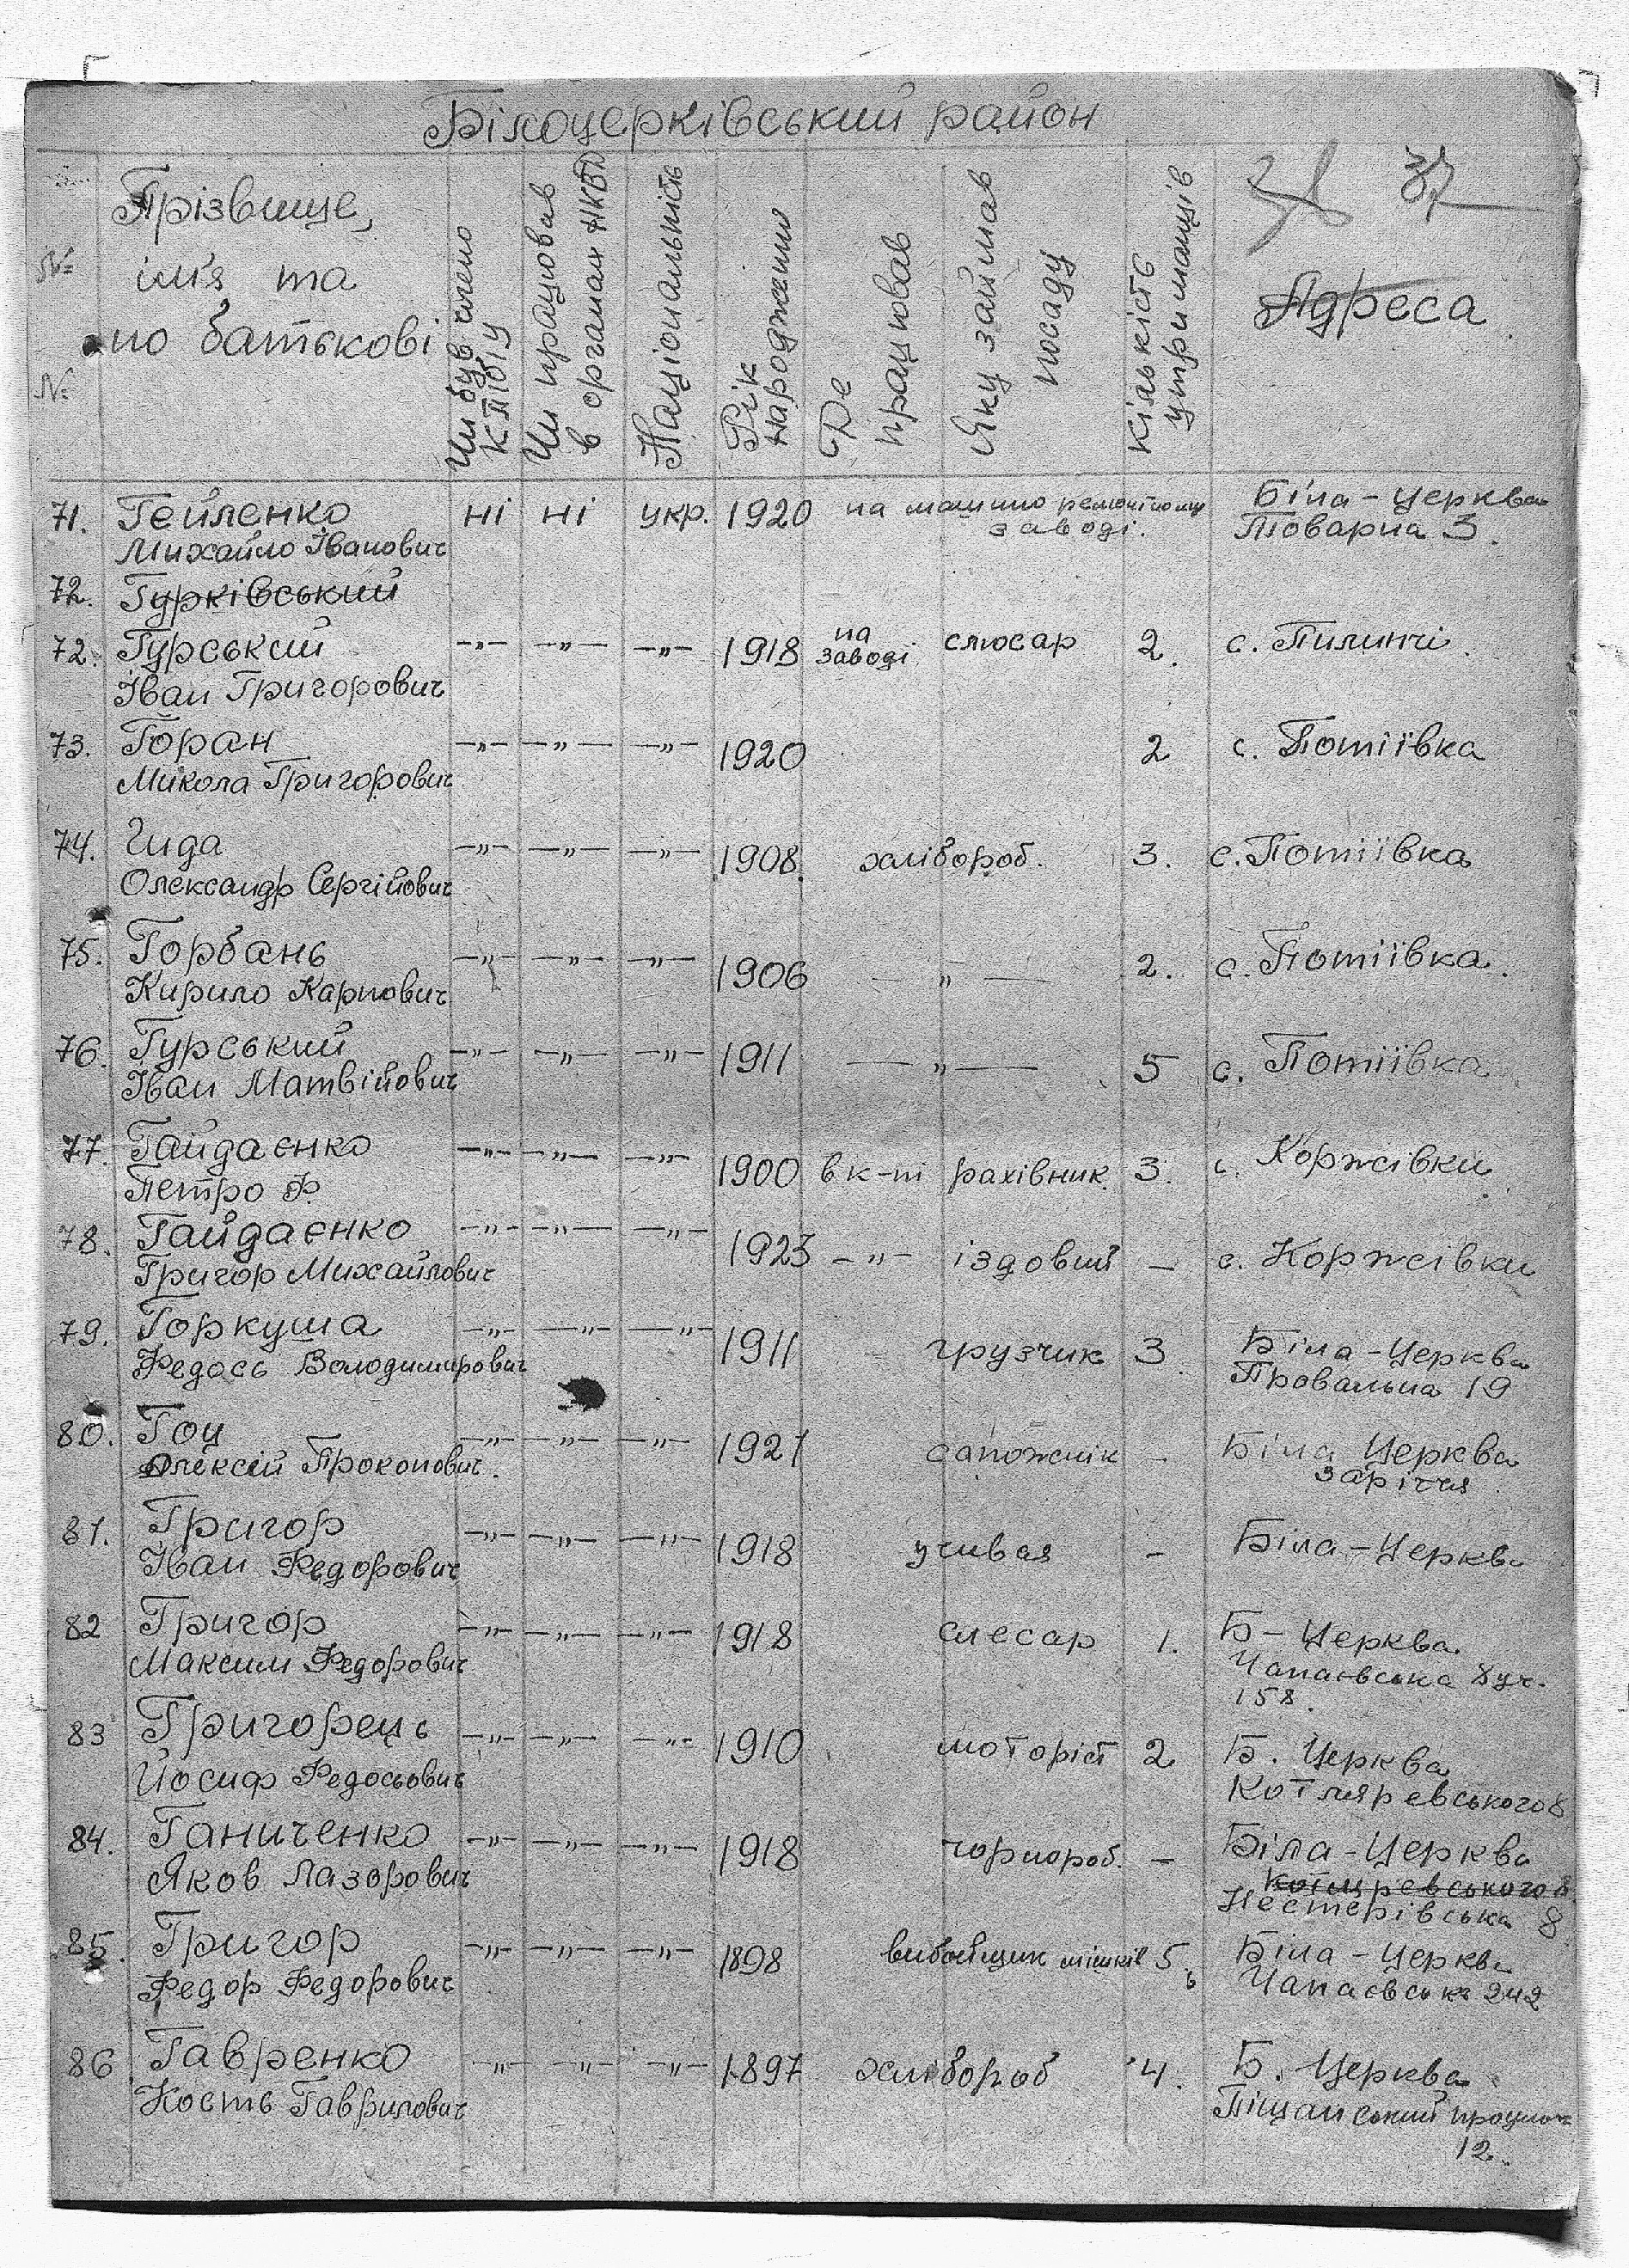 Білоцерківський район
37
№ № Прізвище, ім'я та по батькові
Чи був член КП(б)У
Чи працював в органах НКВД
Національність
Рік народження
Де працював
Яку займав посаду
Кількість утриманців
Адреса
71. Гейленко ні ні укр. 1920 на машино ремонтному заводі. Біла-Церква
Михайло Іванович Товарна 3.
72. Гурківський
72. Гурський -"- -"- -"- 1918 на заводі слюсар 2. с. Пилипчі.
Іван Григорович
73. Горан -"- -"- -"- 1920 2 с. Потіївка
Микола Григорович
74. Гида -"- -"- -"- 1908. хлібороб. 3. с. Потіївка
Олександр Сергійович
75. Горбань -"- -"- -"- 1906 -"- 2. с. Потіївка.
Кирило Карпович
76. Гурський -"- -"- -"- 1911 -"- 5 с. Потіївка
Іван Матвійович
77. Гайдаєнко -"- -"- -"- 1900 в к-ті рахівник 3. с. Коржівки
Петро Ф.
78. Гайдаєнко -"- -"- -"- 1923 -"- їздовий - с. Коржівки
Григор Михайлович
79. Горкуша -"- -"- -"- 1911 грузчик 3 Біла-Церква
Федось Володимирович Провальна 19
80. Гоц -"- -"- -"- 1921 сапожнік - Біла Церква
Олексій Прокопович. заріччя
81. Григор -"- -"- -"- 1918 учився - Біла-Церква
Іван Федорович
82 Григор -"- -"- -"- 1918 слесар 1. Б-Церква
Максим Федорович Чапаєвська 8 уч. 158.
83 Григорець -"- -"- -"- 1910 моторіст 2 Б. Церква
Йосиф Федосьович Котляревського 8
84. Ганиченко -"- -"- -"- 1918 чорнороб. - Біла-Церква
Яков Лазорович Котляревського 8
Нестерівська 8
85. Григор -"- -"- -"- 1898 вибойщик мішків 5. Біла-Церква
Федор Федорович Чапаєвська 242
86 Гавренко -"- -"- -"- 1897 хлібороб 4. Б. Церква
Кость Гаврилович Піщанський
12.